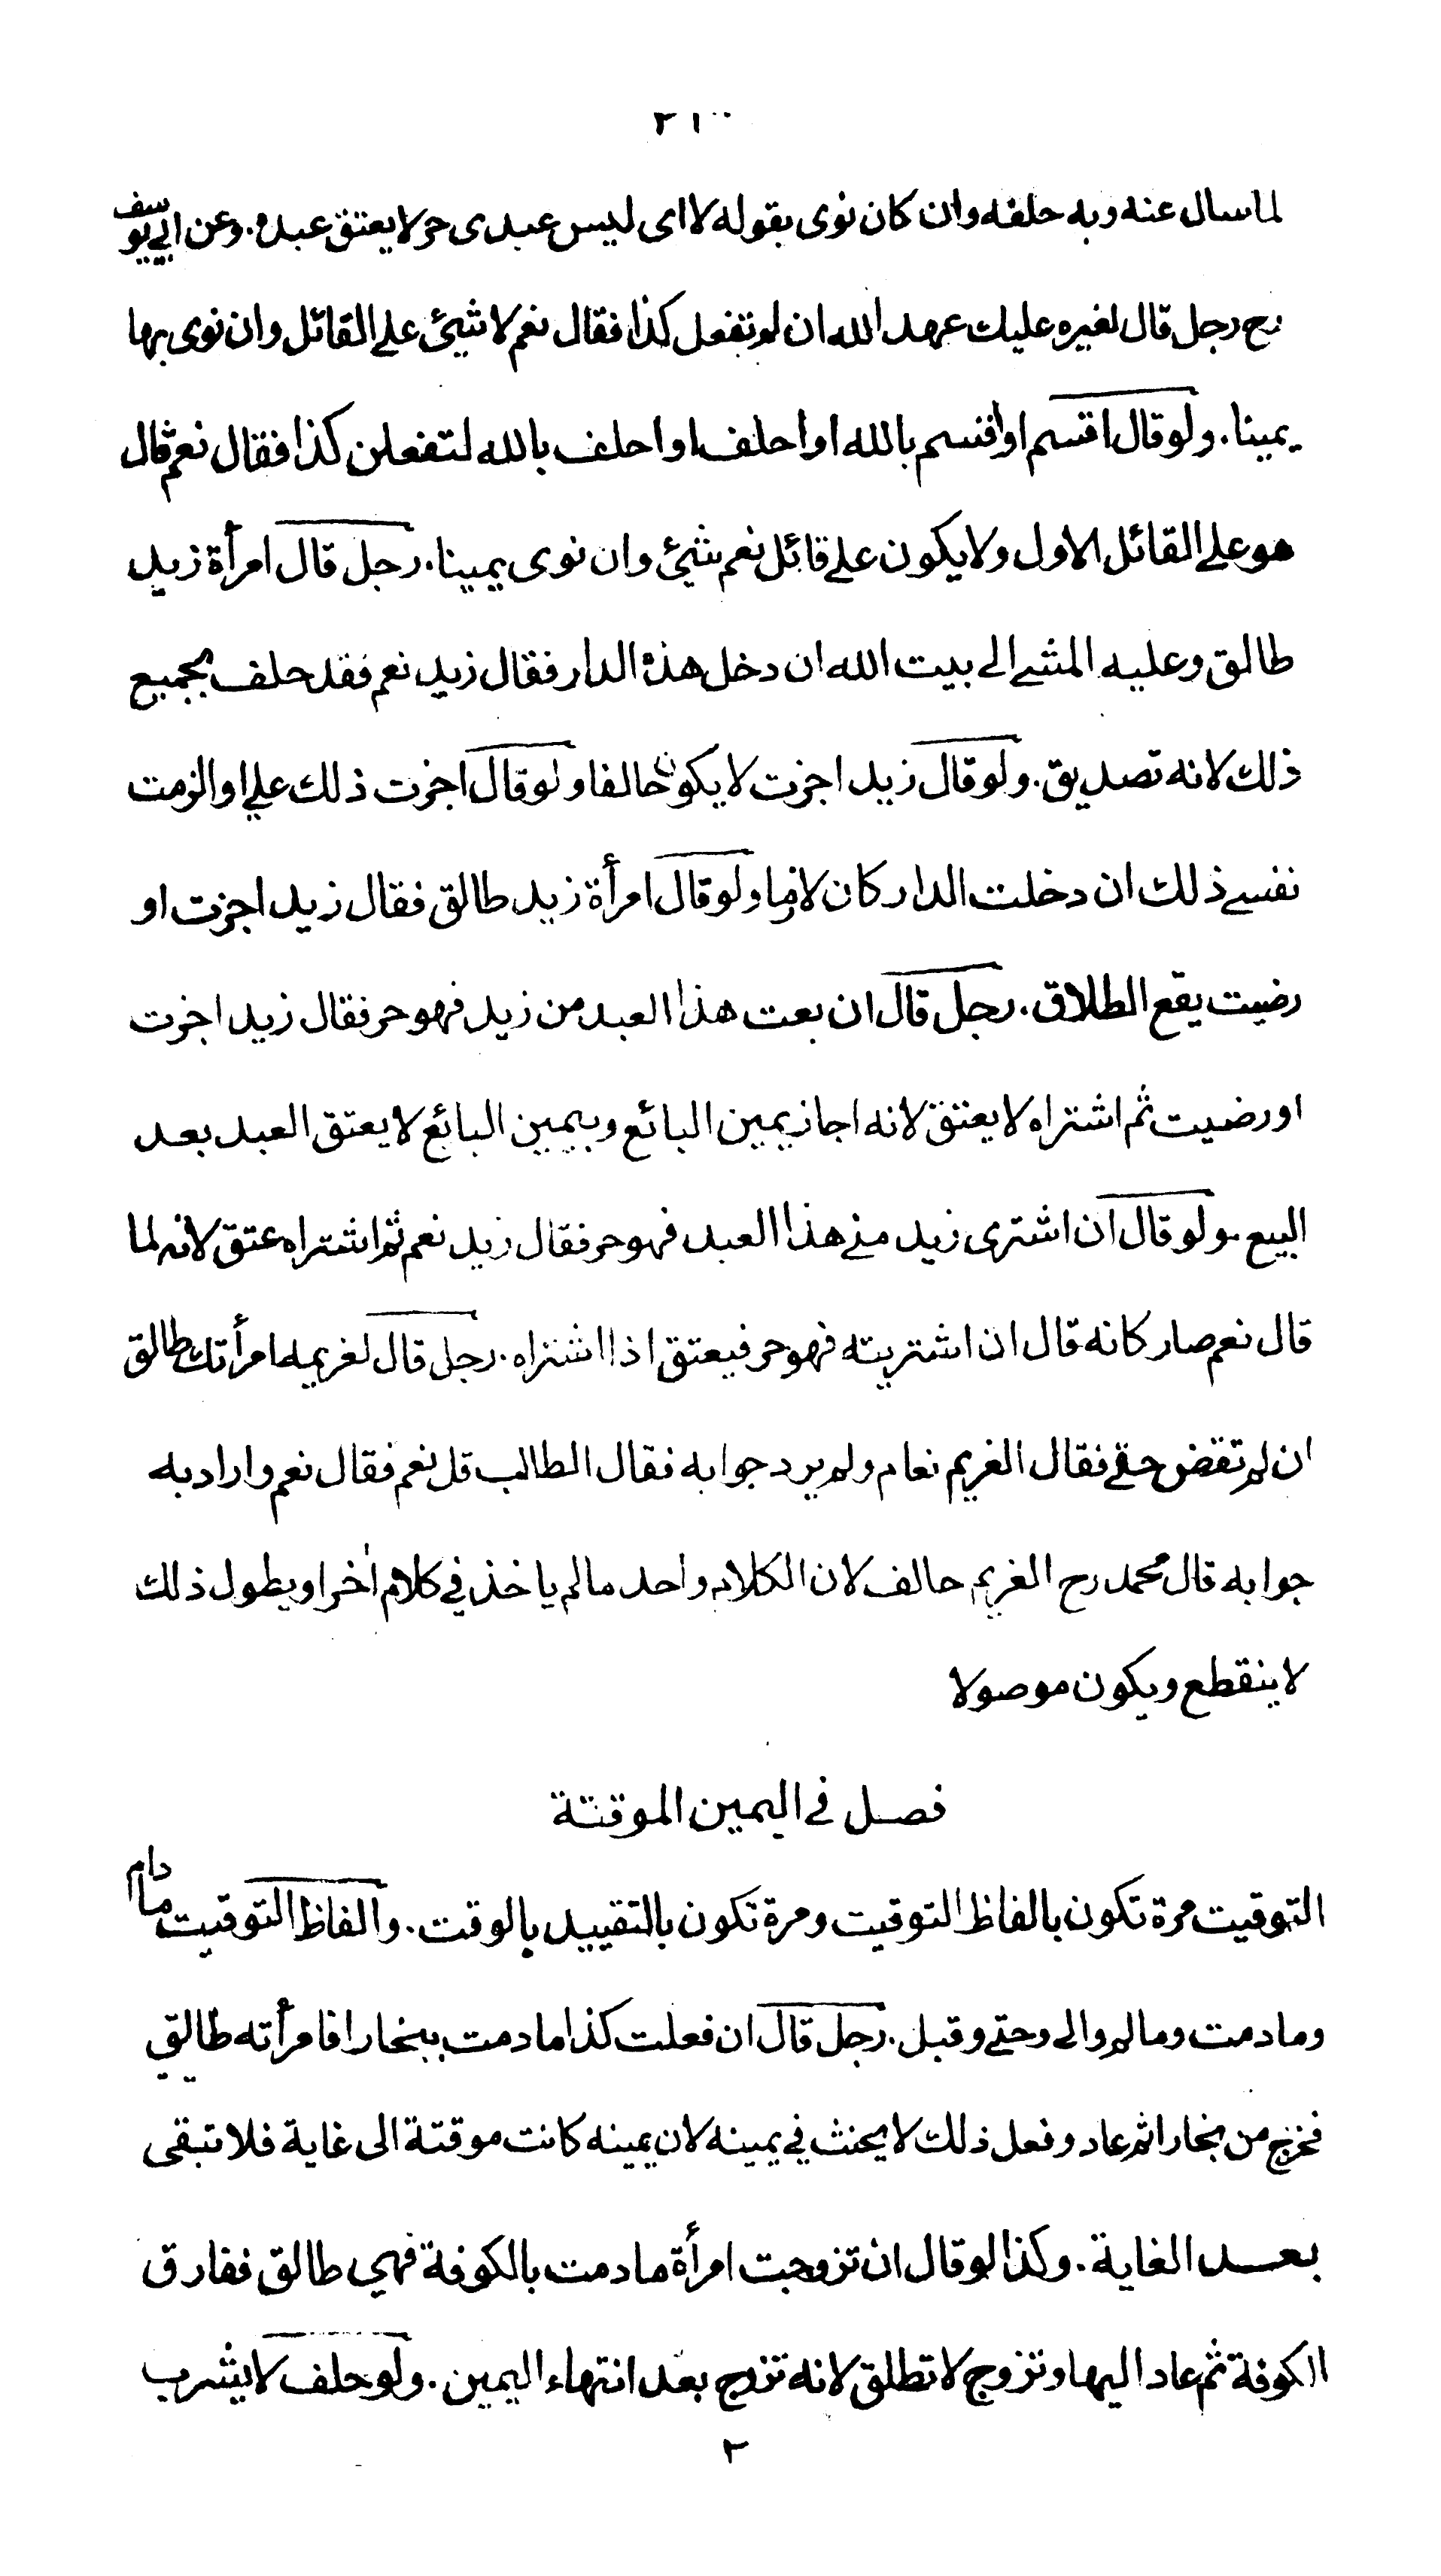 ٢١٠
لما سال عنه وبه حلفه وان كان نوى بقوله لا اى ليس عبدى حر لا يعتق عبده . وعن ابي يوسف
رح رجل قال لغيره عليك عهد الله ان لم تفعل كذا فقال نعم لا شيئ على القائل وان نوى بها
يمينا . ولو قال اقسم او اقسم بالله او احلف او احلف بالله لتفعلن كذا فقال نعم قال
هو على القائل الاول ولا يكون على قائل نعم شيئ وان نوى يمينا . رجل قال امرأة زيد
طالق وعليه المشي الى بيت الله ان دخل هذه الدار فقال زيد نعم فقد حلف بجميع
ذلك لانه تصديق . ولو قال زيد اجزت لا يكون حالفا ولو قال اجزت ذلك علي او الزمت
نفسي ذلك ان دخلت الدار كان لازما ولو قال امرأة زيد طالق فقال زيد اجزت او
رضيت يقع الطلاق . رجل قال ان بعت هذا العبد من زيد فهو حر فقال زيد اجزت
او رضيت ثم اشتراه لا يعتق لانه اجاز يمين البائع وبيمين البائع لا يعتق العبد بعد
البيع . ولو قال ان اشترى زيد مني هذا العبد فهو حر فقال زيد نعم ثم اشتراه عتق لانه لما
قال نعم صار كانه قال ان اشتريته فهو حر فيعتق اذا اشتراه . رجل قال لغريمه امرأتك طالق
ان لم تقض حقي فقال الغريم نعام ولم يرد جوابه فقال الطالب قل نعم فقال نعم واراد به
جوابه قال محمد رح الغريم حالف لان الكلام واحد ما لم ياخذ في كلام اٰخر او يطول ذلك
لا ينقطع ويكون موصولا
فصل في اليمين الموقتة
التوقيت مرة تكون بالفاظ التوقيت ومرة تكون بالتقييد بالوقت . والفاظ التوقيت ما دام
وما دمت وما لم والى وحتى وقبل . رجل قال ان فعلت كذا ما دمت ببخارا فامرأته طالق
فخرج من بخارا ثم عاد وفعل ذلك لا يحنث في يمينه لان يمينه كانت موقتة الى غاية فلا تبقى
بعد الغاية . وكذا لو قال ان تزوجت امرأة ما دمت بالكوفة فهي طالق ففارق
الكوفة ثم عاد اليها وتزوج لا تطلق لانه تزوج بعد انتهاء اليمين . ولو حلف لا يشرب
٢